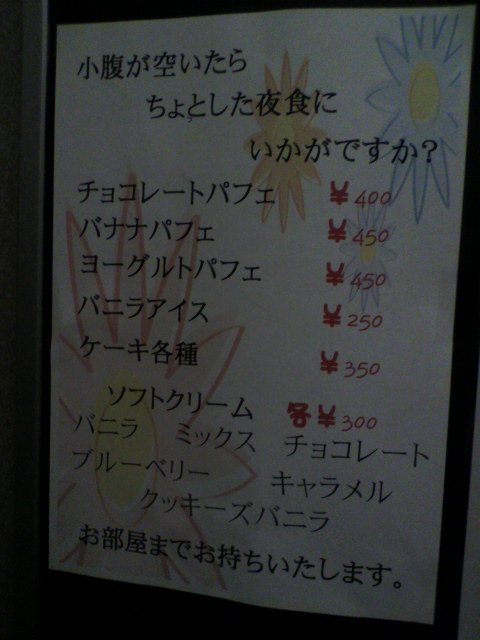 小腹が空いたら
ちょとした夜食に
いかがですか?
チョコレートパフェ ¥400
バナナパフェ ¥450
ヨーグルトパフェ ¥450
バニラアイス ¥250
ケーキ各種 ¥350
ソフトクリーム 各¥300
バニラ ミックス チョコレート
ブルーベリー キャラメル
クッキーズバニラ
お部屋までお持ちいたします。